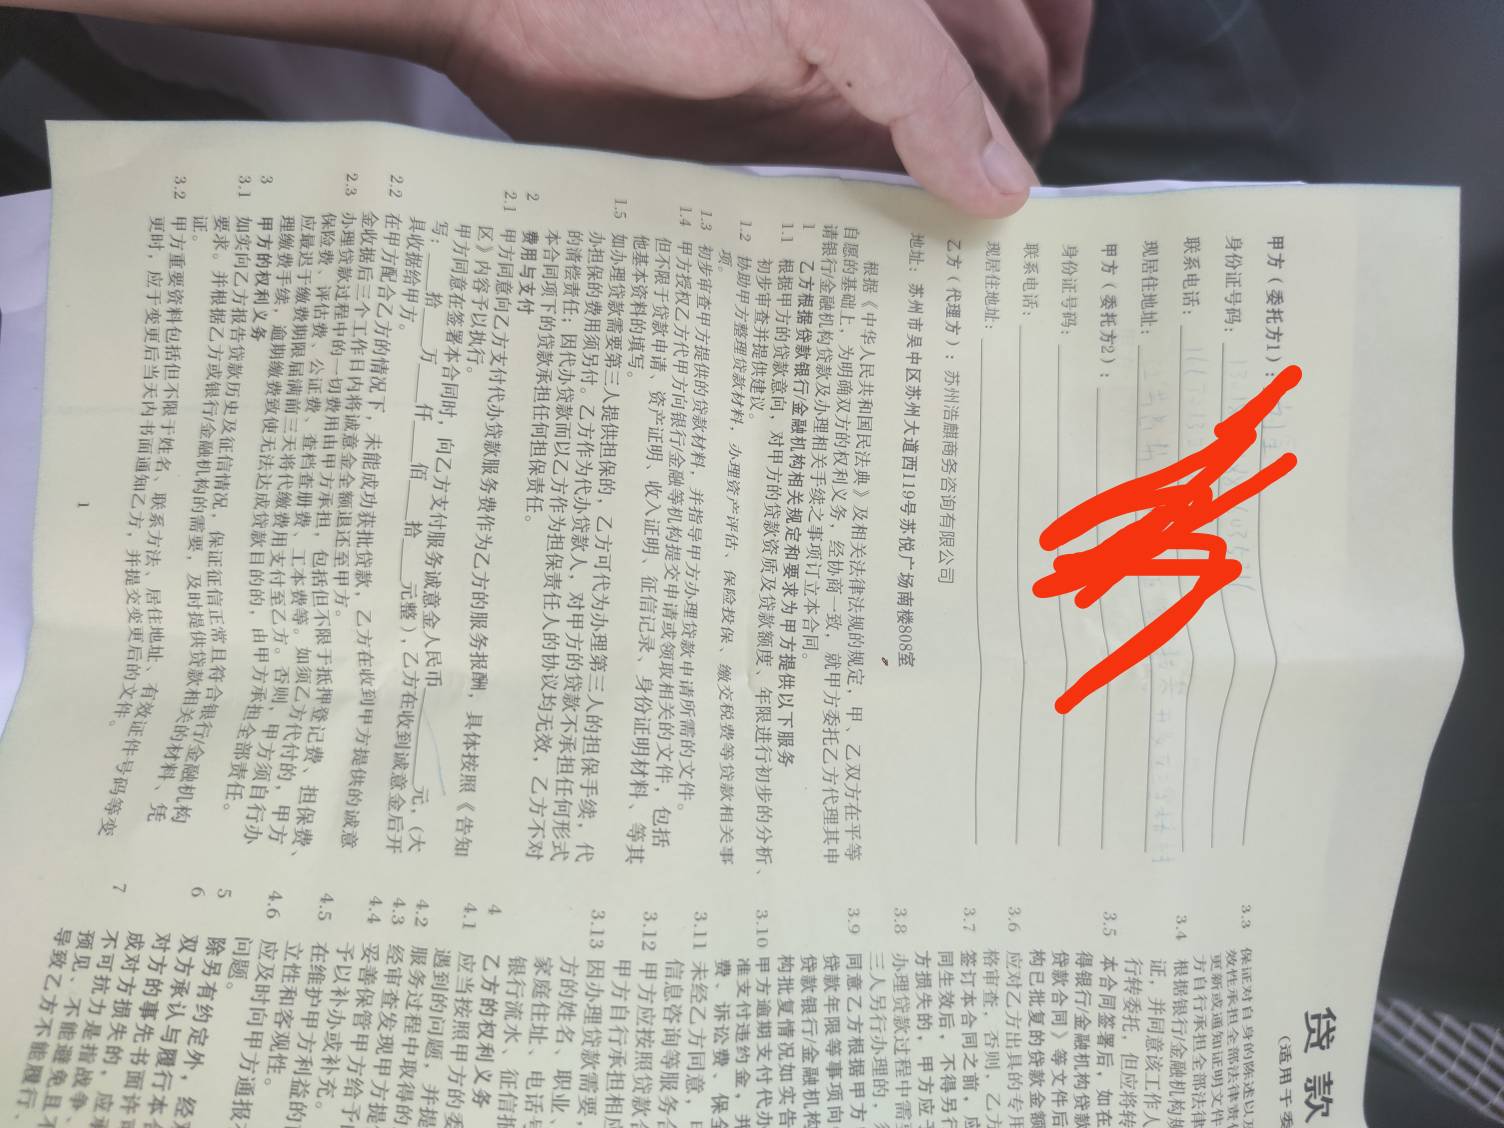 贷款
(适用于委
甲方（委托方1）：
身份证号码：
联系电话：
现居住地址：
甲方（委托方2）：
身份证号码：
联系电话：
现居住地址：
乙方（代理方）：苏州浩麒商务咨询有限公司
地址：苏州市吴中区苏州大道西119号苏悦广场南楼808室
根据《中华人民共和国民法典》及相关法律法规的规定，甲、乙双方在平等
自愿的基础上，为明确双方的权利义务，经协商一致，就甲方委托乙方代理其申
请银行/金融机构贷款及办理相关手续之事项订立本合同。
1 乙方根据贷款银行/金融机构相关规定和要求为甲方提供以下服务
1.1 根据甲方的贷款意向，对甲方的贷款资质及贷款额度、年限进行初步的分析、
初步审查并提供建议。
1.2 协助甲方整理贷款材料，办理资产评估、保险投保、缴交税费等贷款相关事
项。
1.3 初步审查甲方提供的贷款材料，并指导甲方办理贷款申请所需的文件。
1.4 甲方授权乙方代甲方向银行/金融等机构提交申请或领取相关的文件，包括
但不限于贷款申请、资产证明、收入证明、征信记录、身份证明材料、等其
他基本资料的填写。
1.5 如办理贷款需要第三人提供担保的，乙方可代为办理第三人的担保手续，代
办担保的费用须另付。乙方作为代办贷款人，对甲方的贷款不承担任何形式
的清偿责任；因代办贷款而以乙方作为担保责任人的协议均无效，乙方不对
本合同项下的贷款承担任何担保责任。
2 费用与支付
2.1 甲方同意向乙方支付代办贷款服务费作为乙方的服务报酬，具体按照《告知
区》内容予以执行。
甲方同意在签署本合同时，向乙方支付服务诚意金人民币 元，（大
写： 拾 万 仟 佰 拾 元整），乙方在收到诚意金后开
具收据给甲方。
2.2 在甲方配合乙方的情况下，未能成功获批贷款，乙方在收到甲方提供的诚意
金收据后三个工作日内将诚意金全额退还至甲方。
2.3 办理贷款过程中的一切费用由甲方承担，包括但不限于抵押登记费、担保费、
保险费、评估费、公证费、查档查册费、工本费等。如须乙方代付的，甲方
应最迟于缴费期限届满前三天将代缴费用支付至乙方。否则，甲方须自行办
理缴费手续，逾期缴费致使无法达成贷款目的的，由甲方承担全部责任。
3 甲方的权利义务
3.1 如实向乙方报告贷款历史及征信情况，保证征信正常且符合银行/金融机构
要求。并根据乙方或银行/金融机构的需要，及时提供贷款相关的材料、凭
证。
3.2 甲方重要资料包括但不限于姓名、联系方法、居住地址、有效证件号码等变
更时，应于变更后当天内书面通知乙方，并提交变更后的文件。
1
3.3 保证对自身的陈述以及
效性承担全部法律责任
更新或通知证明文件
方自行承担全部法律
3.4 根据银行/金融机构规
证，并同意该工作人
行转委托，但应将转
3.5 本合同签署后，如在
得银行/金融机构贷款
贷款合同》等文件后
构已批复的贷款金额
3.6 应对乙方出具的专用
格审查，否则，乙方
3.7 签订本合同之前，应
同生效后，不得另行
方损失的，甲方应于
3.8 办理贷款过程中需要
三人另行办理的，多
3.9 同意乙方根据甲方
贷款年限等事项向
贷款银行/金融机构
构批复情况如实告
3.10 甲方逾期支付代办
准支付违约金，并
费、诉讼费、保全
3.11 未经乙方同意，甲
信息咨询等服务合
3.12 甲方应按照贷款合
甲方自行承担相应
3.13 因办理贷款需要，
方的姓名、职业、
家庭住址、电话号
银行流水、征信报
4 乙方的权利义务
4.1 应当按照甲方的委
遇到的问题，并提
4.2 服务过程中取得的
4.3 经审查发现甲方提
4.4 妥善保管甲方给予的
予以补办或补充。
4.5 在维护甲方利益的前
立性和客观性。
4.6 应及时向甲方通报本
问题。
5 除另有约定外，经双
6 双方承认与履行本合
对方的事先书面许可
成对方损失的，应承
7 不可抗力是指战争、
预见、不能避免且不
导致乙方不能履行、